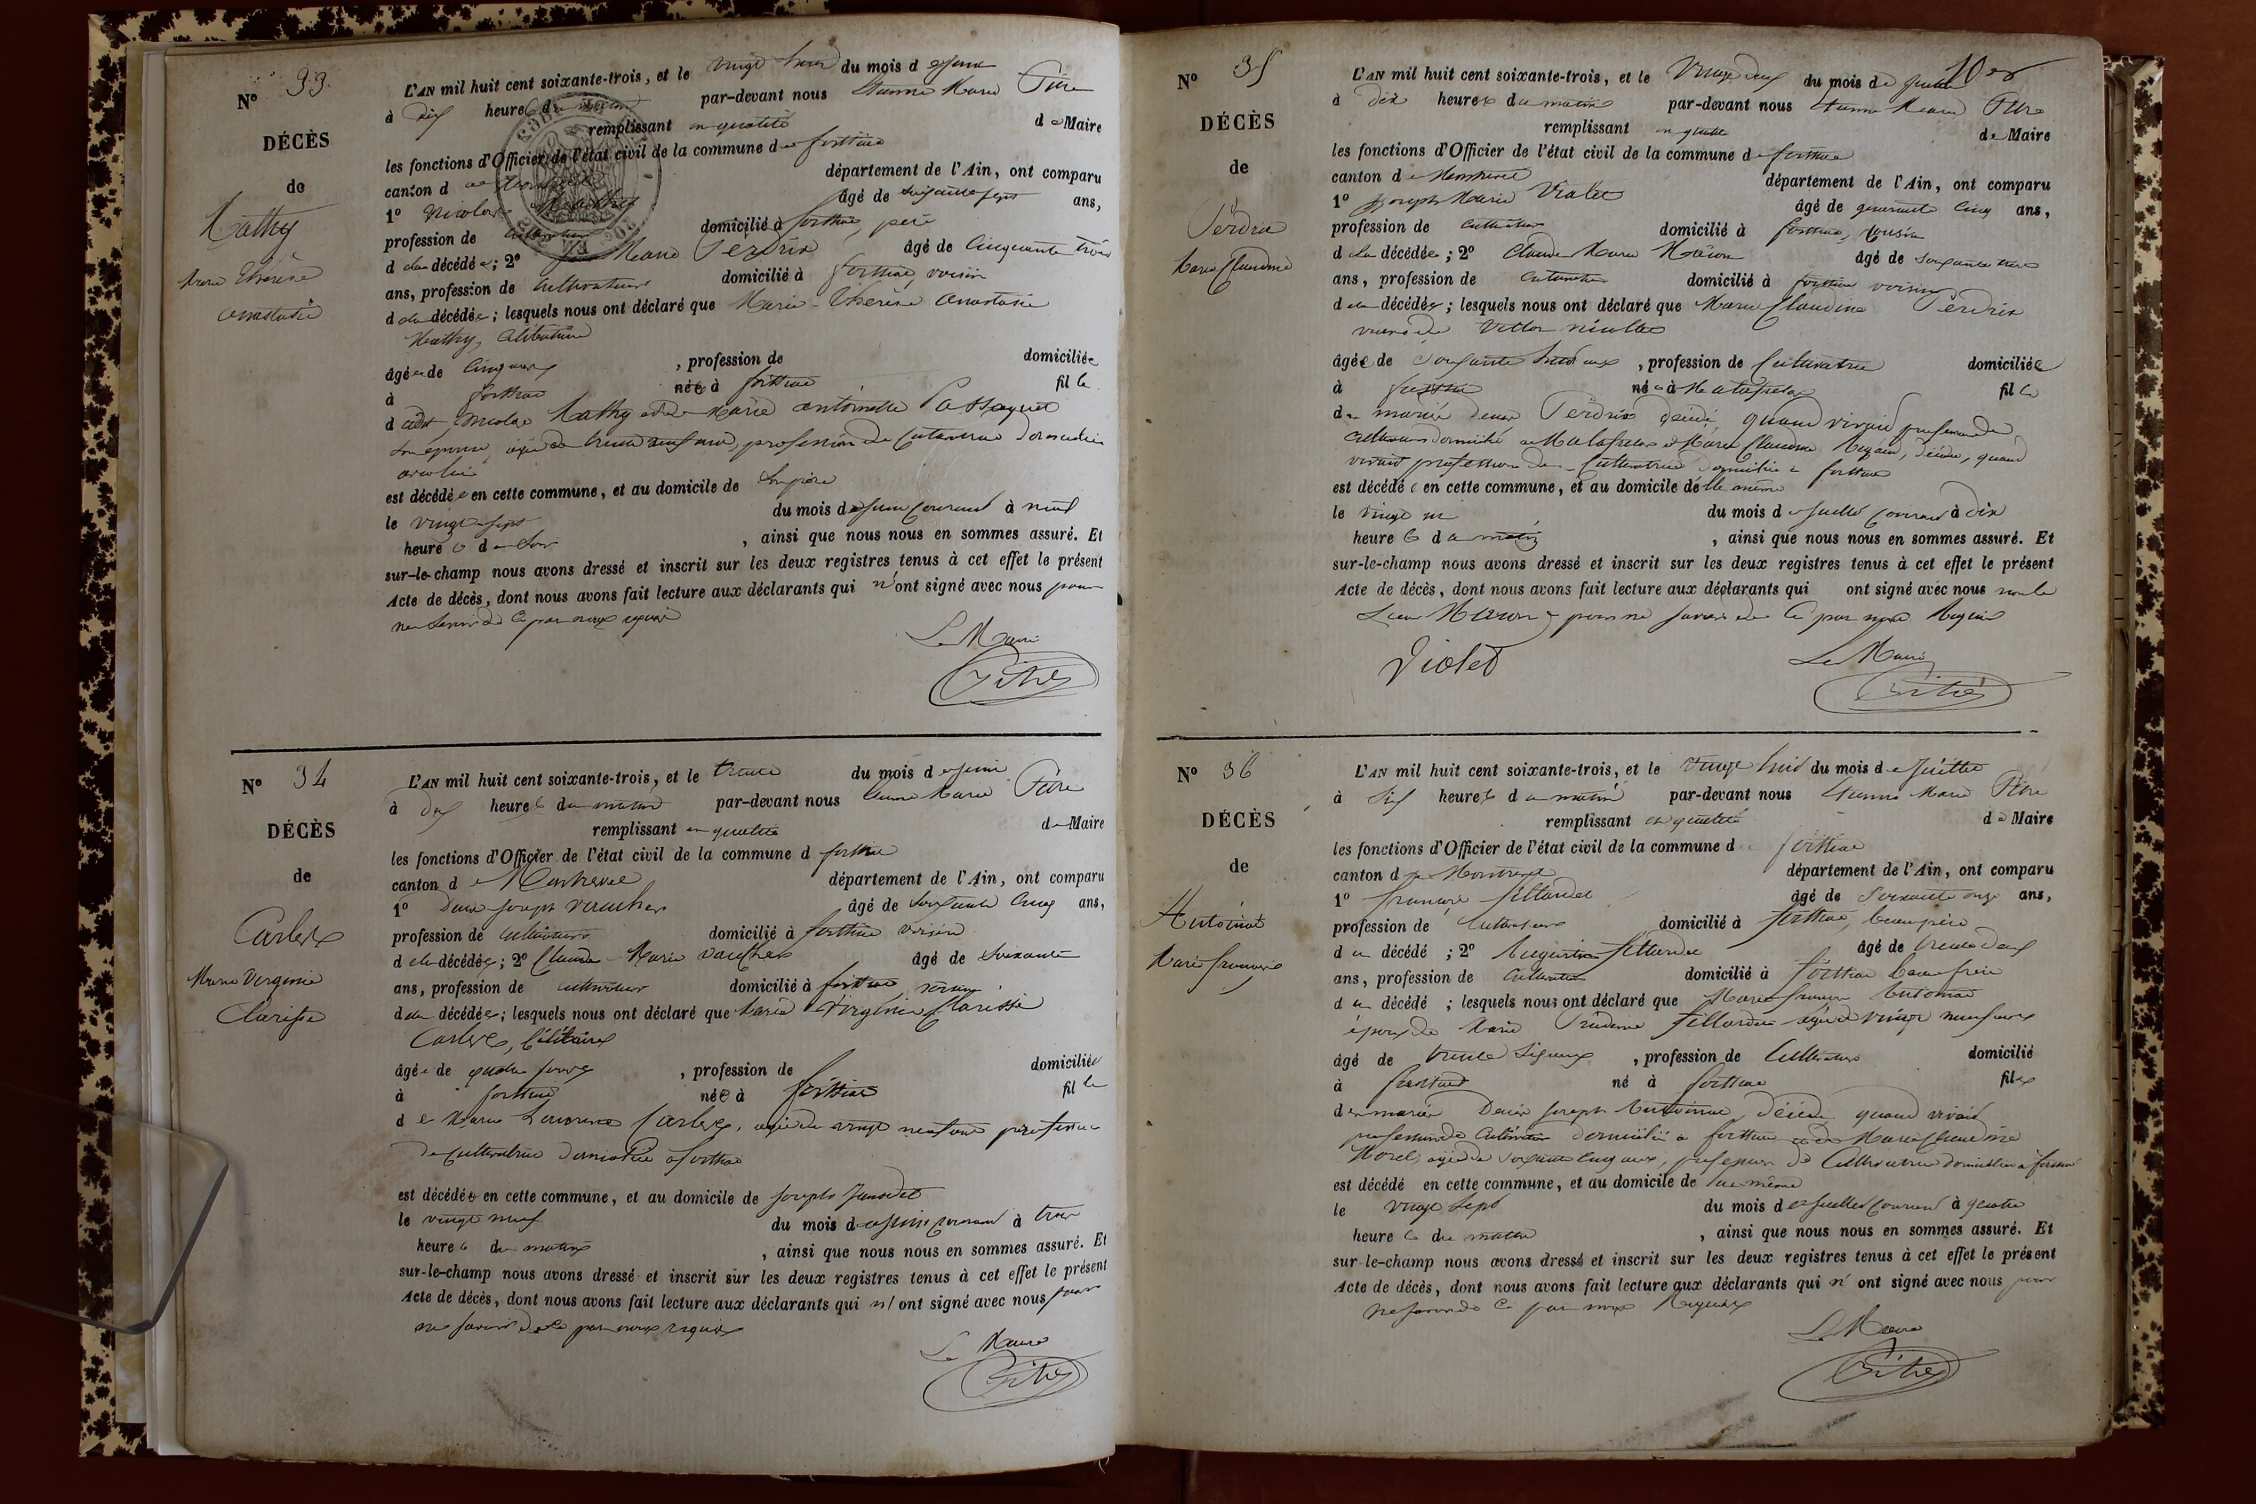 N° 33
DÉCÈS
de
Mathy
Marie Thérèse
Anastasie
L'AN mil huit cent soixante-trois, et le vingt huit du mois de juin
à dix heures du matin par-devant nous Etienne Marie Pitre
remplissant en qualité de Maire
les fonctions d'Officier de l'état civil de la commune de
canton de département de l'Ain, ont comparu
1° Nicolas Mathy âgé de ans,
profession de cultivateur domicilié à père
de la décédée; 2° Marie Perdrix âgé de cinquante trois
ans, profession de cultivateur domicilié à voisin
de la décédée; lesquels nous ont déclaré que Marie Thérèse Anastasie
Mathy, célibataire
âgée de cinq ans, profession de domiciliée
à née à fille
de Nicolas Mathy et de Marie Antoinette
son épouse, âgée de trente neuf ans, profession de cultivatrice domiciliée
est décédée en cette commune, et au domicile de son père
le vingt sept du mois de juin courant à neuf
heures du soir, ainsi que nous nous en sommes assuré. Et
sur-le-champ nous avons dressé et inscrit sur les deux registres tenus à cet effet le présent
Acte de décès, dont nous avons fait lecture aux déclarants qui n'ont signé avec nous pour
ne savoir de ce par nous requis
Le Maire
Pitre
N° 34
DÉCÈS
de
Marie Virginie
Clarisse
L'AN mil huit cent soixante-trois, et le trente du mois de juin
à dix heures du matin par-devant nous Etienne Marie Pitre
remplissant en qualité de Maire
les fonctions d'Officier de l'état civil de la commune d
canton de Montrevel département de l'Ain, ont comparu
1° Denis Joseph Vaucher âgé de soixante cinq ans,
profession de cultivateur domicilié à voisin
de la décédée; 2° Claude Marie Vaucher âgé de soixante
ans, profession de cultivateur domicilié à voisin
de la décédée; lesquels nous ont déclaré que Marie Virginie Clarisse
célibataire
âgée de quatre jours, profession de domiciliée
à née à fille
de Marie âgée de vingt neuf ans profession
de cultivatrice domiciliée à
est décédée en cette commune, et au domicile de Joseph
le vingt neuf du mois de juin courant à trois
heures du matin, ainsi que nous nous en sommes assuré. Et
sur-le-champ nous avons dressé et inscrit sur les deux registres tenus à cet effet le présent
Acte de décès, dont nous avons fait lecture aux déclarants qui n'ont signé avec nous pour
ne savoir de ce par nous requis
Le Maire
Pitre
N° 35
DÉCÈS
de
Perdrix
Marie Claudine
L'AN mil huit cent soixante-trois, et le vingt deux du mois de juillet
à dix heures du matin par-devant nous Etienne Marie Pitre
remplissant en qualité de Maire
les fonctions d'Officier de l'état civil de la commune de
canton de Montrevel département de l'Ain, ont comparu
1° Joseph Marie Violet âgé de quarante cinq ans,
profession de cultivateur domicilié à cousin
de la décédée; 2° Claude Marie âgé de soixante
ans, profession de cultivateur domicilié à voisin
de la décédée; lesquels nous ont déclaré que Marie Claudine Perdrix
veuve de
âgée de soixante huit ans, profession de cultivatrice domiciliée
à née à Malafretaz fille
de mariés Denis Perdrix décédé, quand vivait profession de
cultivateur domicilié à Malafretaz et Marie Claudine décédée, quand
vivait profession de cultivatrice domiciliée à
est décédée en cette commune, et au domicile d'elle même
le vingt un du mois de juillet courant à dix
heures du matin, ainsi que nous nous en sommes assuré. Et
sur-le-champ nous avons dressé et inscrit sur les deux registres tenus à cet effet le présent
Acte de décès, dont nous avons fait lecture aux déclarants qui ont signé avec nous
pour ne savoir de ce par nous requis
Violet
Le Maire
Pitre
N° 36
DÉCÈS
de
Antoinat
Marie François
L'AN mil huit cent soixante-trois, et le vingt huit du mois de juillet
à six heures du matin par-devant nous Etienne Marie Pitre
remplissant en qualité de Maire
les fonctions d'Officier de l'état civil de la commune d
canton de Montrevel département de l'Ain, ont comparu
1° François âgé de soixante onze ans,
profession de cultivateur domicilié à beau père
du décédé; 2° Augustin âgé de trente deux
ans, profession de cultivateur domicilié à beau frère
du décédé; lesquels nous ont déclaré que Marie François Antoinat
époux de Marie âgée de vingt neuf ans
âgé de trente six ans, profession de cultivateur domicilié
à né à fils
de mariés Denis Joseph Antoinat, décédé quand vivait
profession de cultivateur domicilié à et de Marie Claudine
Morel, âgée de soixante cinq ans, profession de cultivatrice domiciliée à
est décédé en cette commune, et au domicile de lui même
le vingt sept du mois de juillet courant à quatre
heures du matin, ainsi que nous nous en sommes assuré. Et
sur-le-champ nous avons dressé et inscrit sur les deux registres tenus à cet effet le présent
Acte de décès, dont nous avons fait lecture aux déclarants qui n'ont signé avec nous pour
ne savoir de ce par nous requis
Le Maire
Pitre